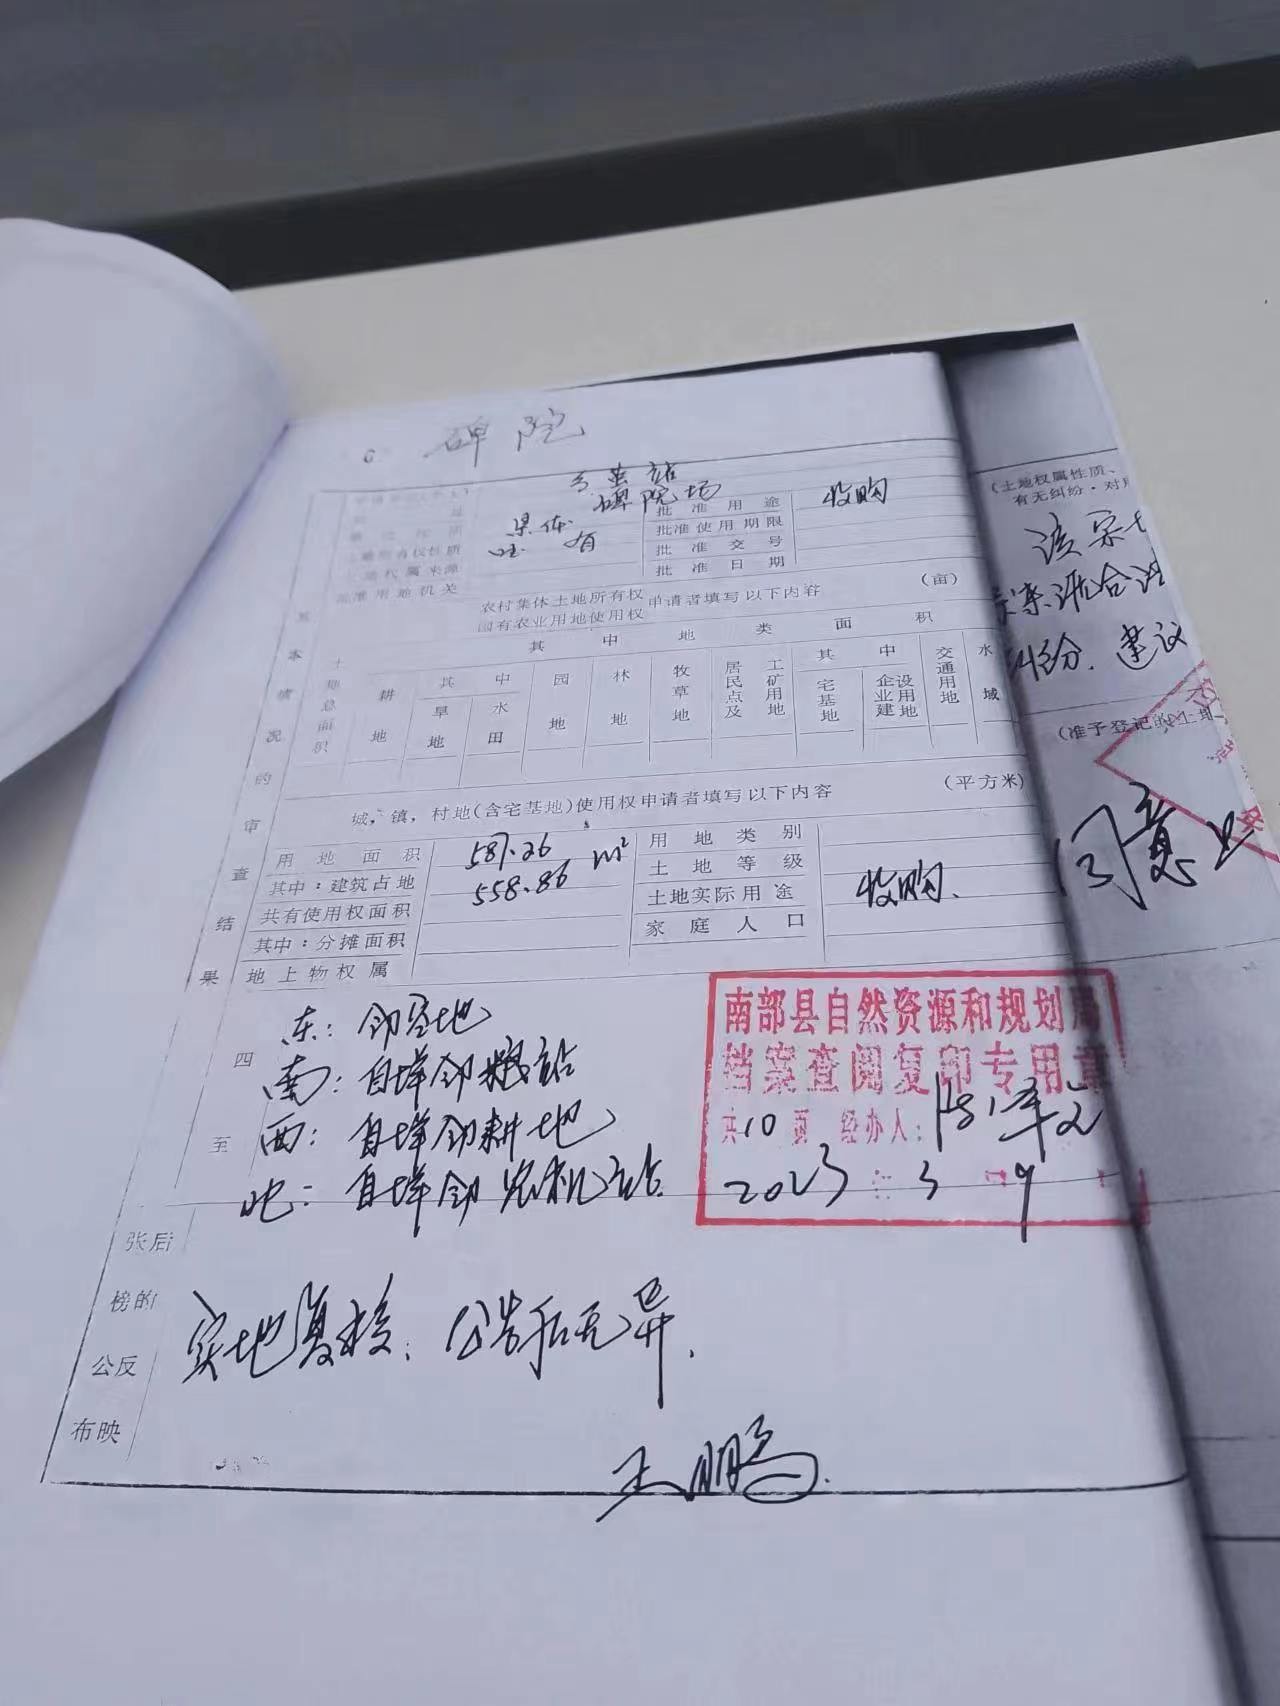 碑院
茧站
碑院场
集体
有
土地所有权性质
批准用地机关
批准用途 收购
批准使用期限
批准文号
批准日期
农村集体土地所有权
国有农业用地使用权
申请者填写以下内容 (亩)
基本情况的审查结果
土地总面积
其中地类面积
耕地
其中
旱地
水田
园地
林地
牧草地
居民点及工矿用地
其中
宅基地
企业建设用地
交通用地
水域
城,镇,村地(含宅基地)使用权申请者填写以下内容 (平方米)
用地面积 587.26 m²
其中:建筑占地 558.86
共有使用权面积
其中:分摊面积
地上物权属
用地类别
土地等级
土地实际用途 收购.
家庭人口
四至
东: 邻空地
南: 自墙邻粮站
西: 自墙邻耕地
北: 自墙邻农机站.
南部县自然资源和规划局
档案查阅复印专用章
共10页 经办人:
2023 3 9
张榜公布后的反映
实地复核, 公告后无异.
王鹏
(土地权属性质、
有无纠纷·对
该宗地
来源合法
纠纷.建议
(准予登记的土地
同意